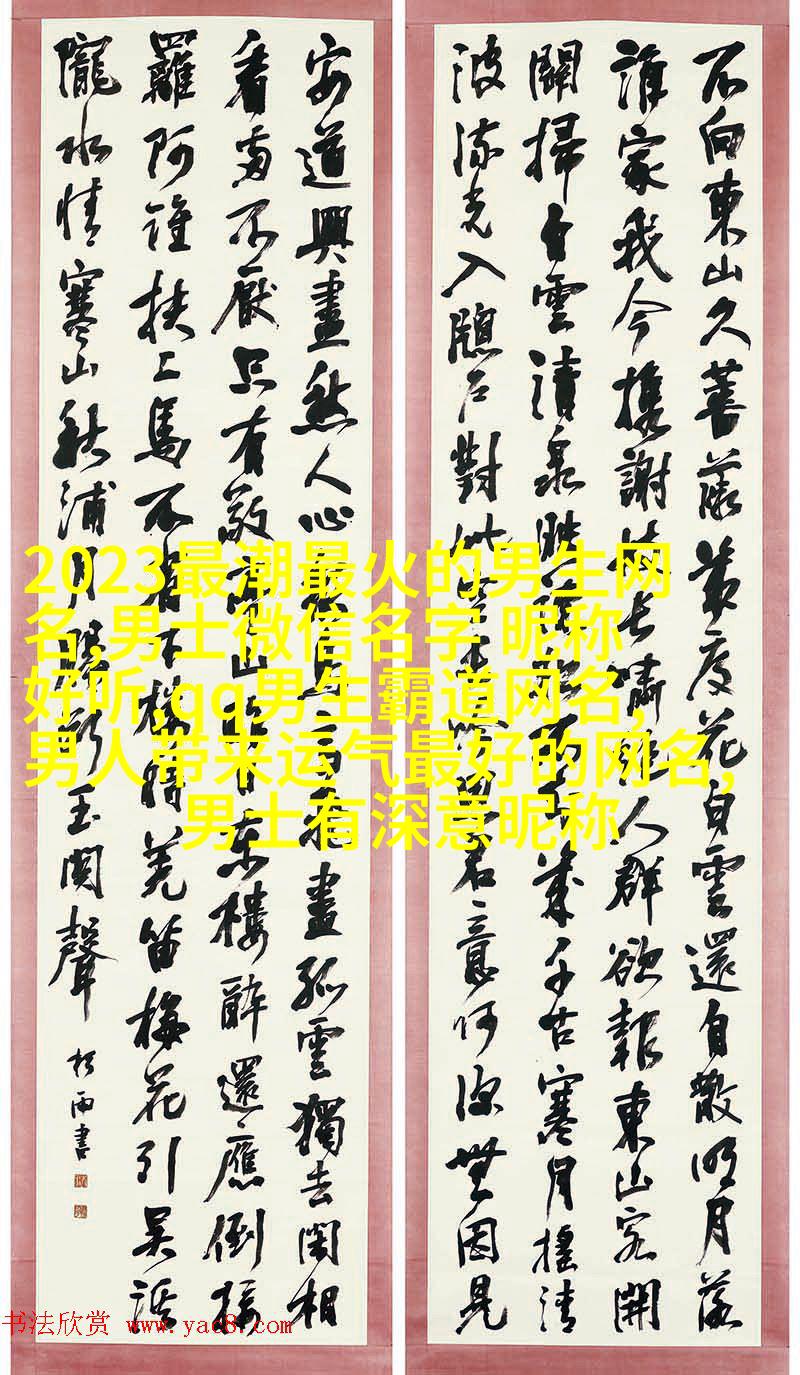 不向東山久薔薇幾度花白雲還自散明月落
誰家我今攜謝妓長嘯絕人群欲報東山客開
關掃白雲清泉映疏松不知幾千古寒月搖清
波流光入牕戶對此空長吟思君意何深無因見
安道興盡愁人心眾鳥高飛盡孤雲獨去閑相
看兩不厭只有敬亭山昨日東樓醉還應倒接
羅阿誰扶上馬不省下樓時羌笛梅花引吳溪
隴水情寒山秋浦月腸斷玉關聲
雨書
2023最潮最火的男生网
名,男士微信名字 昵称
好听,qq男生霸道网名,
男人带来运气最好的网名,
男士有深意昵称
书法欣赏 www.yac8.com